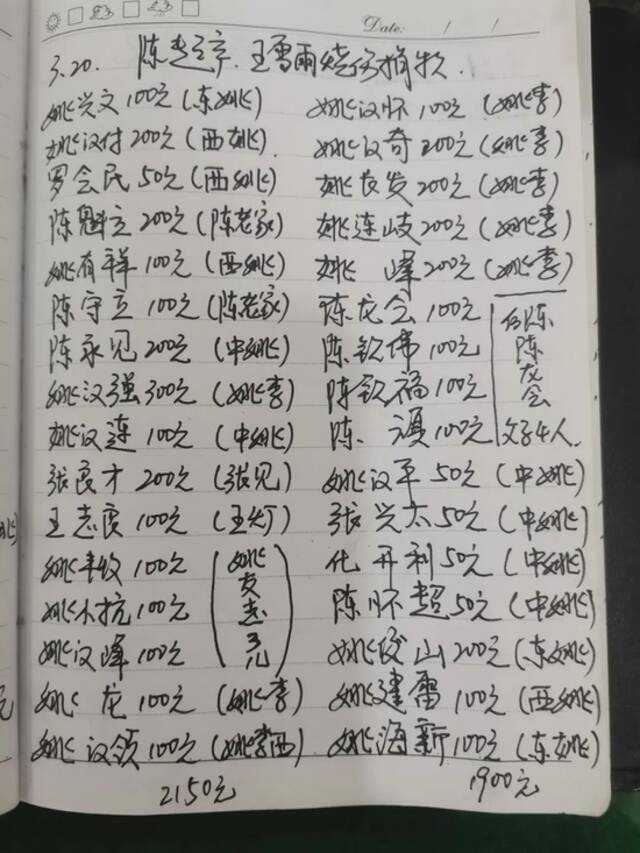 Date: / /
3.20. 陈 章.王雪雨烧伤捐款.
姚兴文100元(东姚)
姚汉付200元(西姚).
罗会民50元(西姚)
陈魁立200元(陈老家)
姚有祥100元(西姚)
陈守立100元(陈老家)
陈永见200元(中姚)
姚汉强300元(姚李)
姚汉连100元(中姚)
张良才200元(张见)
王志良100元(王灯)
姚丰收100元
姚小抗100元
姚汉峰100元
(姚友志子儿)
姚龙100元(姚李)
姚汉领100元(姚李西)
2150元
姚汉怀100元(姚李)
姚汉奇200元(姚李)
姚友发200元(姚李)
姚连岐200元(姚李)
姚 峰200元(姚李)
陈龙会100元
陈钦伟100元
陈钦福100元
陈. 100元
陈
陈龙会
父子4人.
姚汉平50元(中姚)
张兴太50元(中姚)
化开利50元(中姚)
陈怀超50元(中姚)
姚俊山200元(东姚)
姚建雷100元(西姚)
姚海新100元(东姚)
1900元